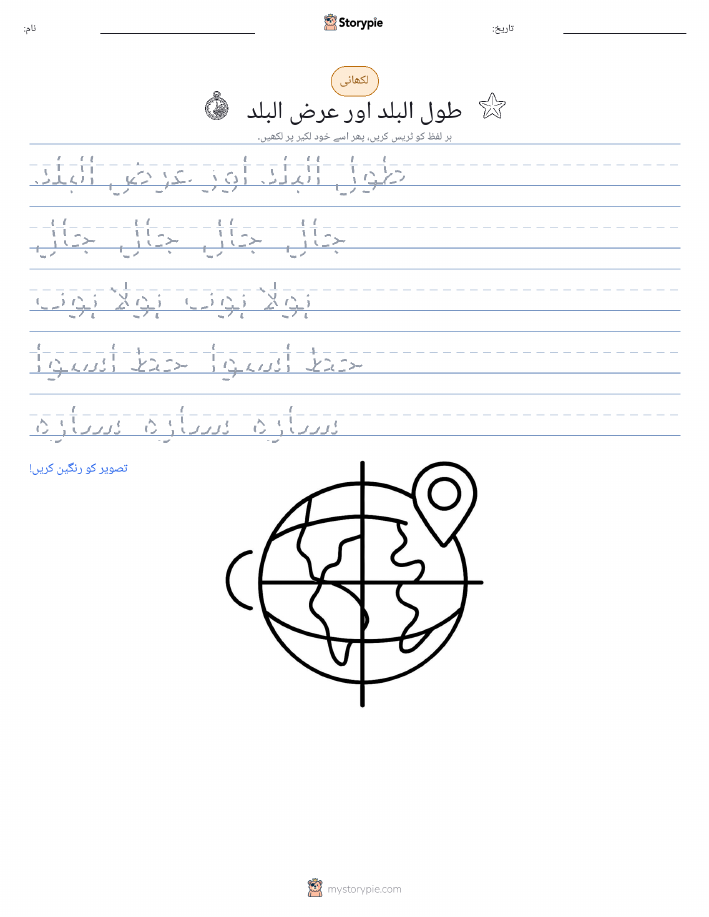 Storypie
نام:
تاریخ:
لکھائی
طول البلد اور عرض البلد
ہر لفظ کو ٹریس کریں، پھر اسے خود لکیر پر لکھیں۔
طول البلد اور عرض البلد
جال جال جال جال
ہولا ہوف ہولا ہوف
خط اسوا خط اسوا
سارہ سارہ سارہ
تصویر کو رنگین کریں!
mystorypie.com